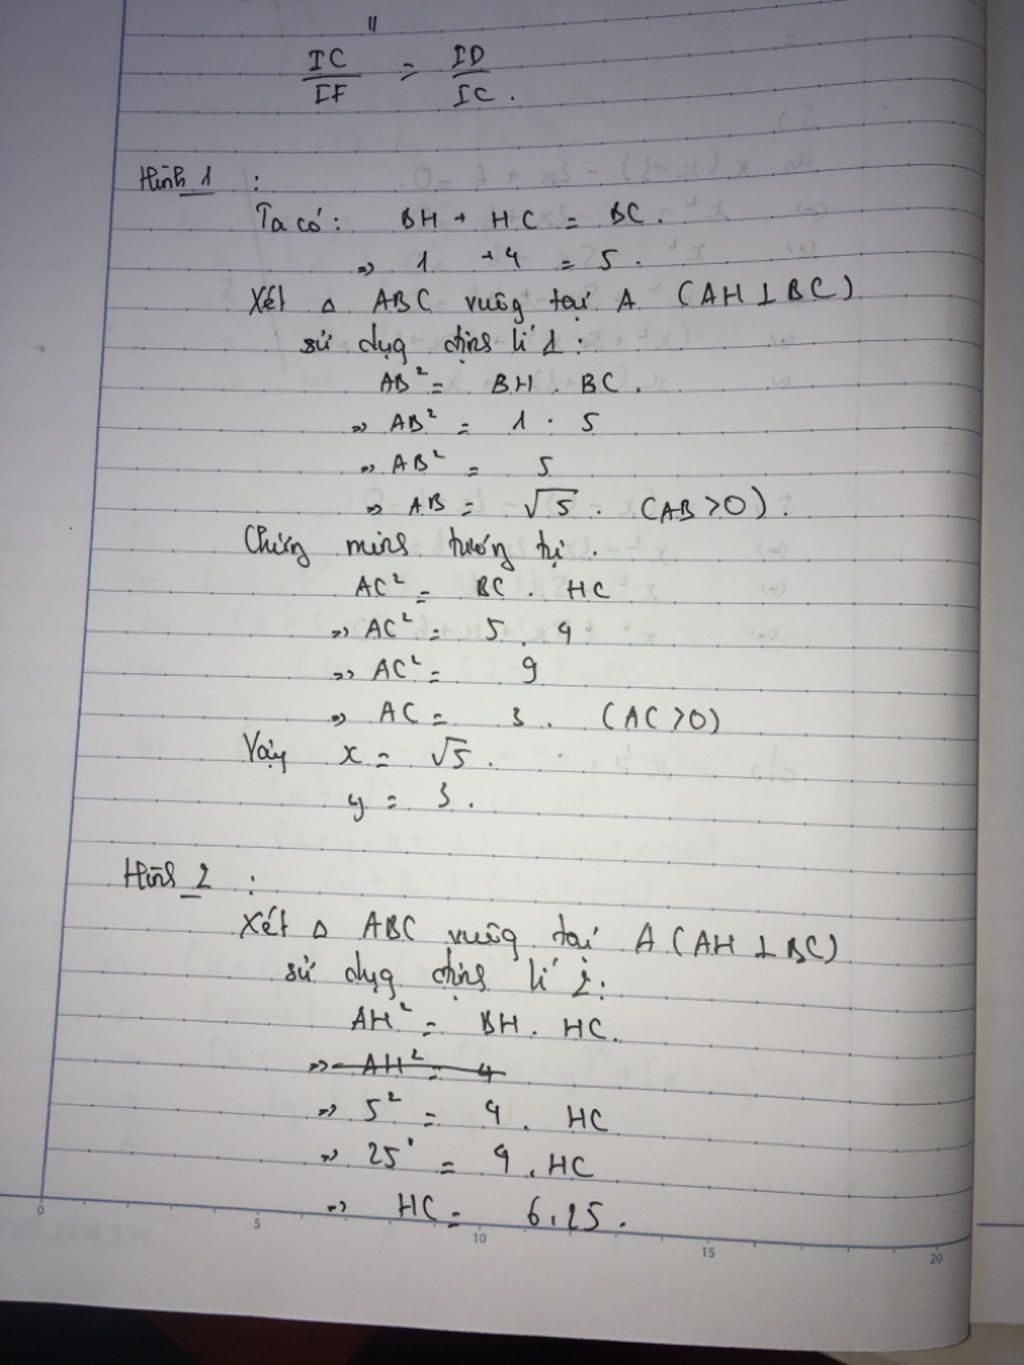 "
IC/IF = ID/IC.
Hình 1 :
Ta có: BH + HC = BC.
=> 1 + 4 = 5.
Xét △ ABC vuông tại A (AH ⊥ BC)
sử dụng định lí 1:
AB² = BH . BC.
=> AB² = 1 . 5
=> AB² = 5
=> AB = √5. (AB > 0).
Chứng minh tương tự.
AC² = BC . HC
=> AC² = 5 . 4
=> AC² = 9
=> AC = 3. (AC > 0)
Vậy x = √5.
y = 3.
Hình 2 :
Xét △ ABC vuông tại A (AH ⊥ BC)
sử dụng định lí 2:
AH² = BH . HC.
=> AH² = 4
=> 5² = 4 . HC
=> 25 = 4 . HC
=> HC = 6,25.
0 5 10 15 20